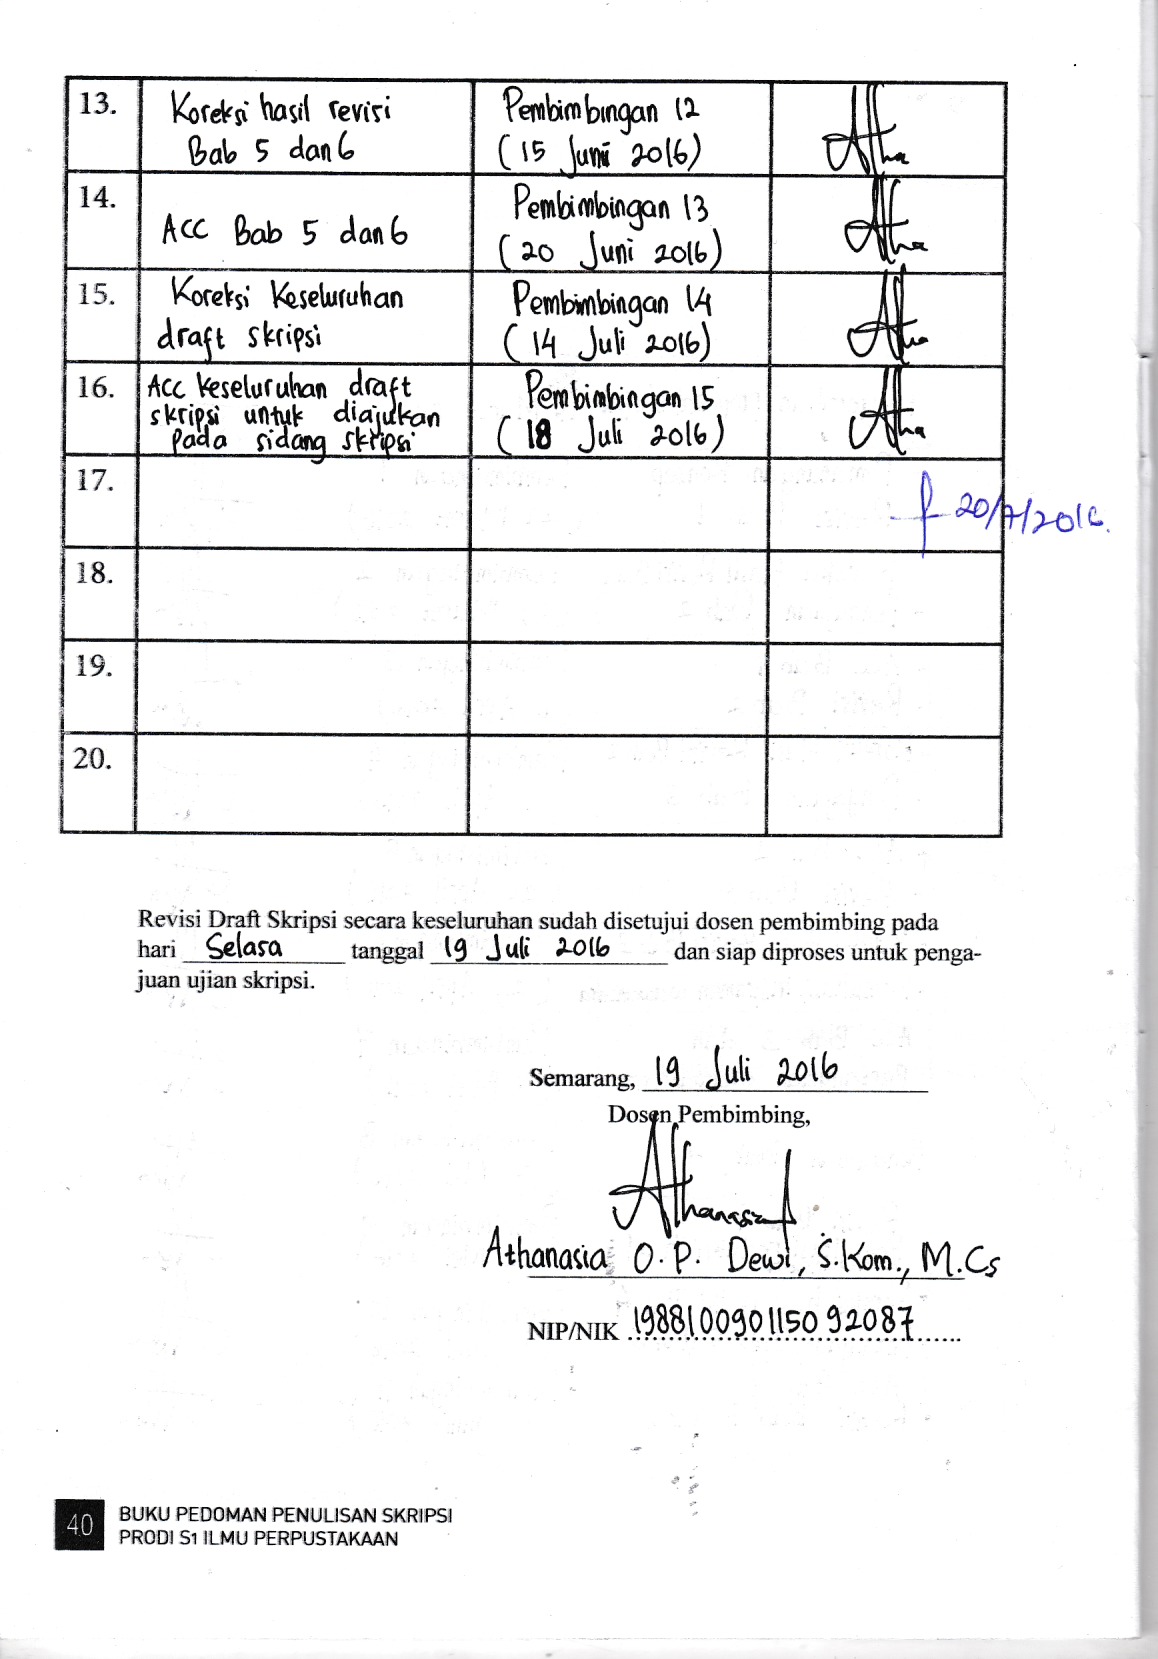 13.
Koreksi hasil revisi
Bab 5 dan 6
Pembimbingan 12
(15 Juni 2016)
Atha
14.
ACC Bab 5 dan 6
Pembimbingan 13
(20 Juni 2016)
Atha
15.
Koreksi Keseluruhan
draft skripsi
Pembimbingan 14
(14 Juli 2016)
Atha
16.
Acc keseluruhan draft
skripsi untuk diajukan
pada sidang skripsi
Pembimbingan 15
(18 Juli 2016)
Atha
17.
20/7/2016.
18.
19.
20.
Revisi Draft Skripsi secara keseluruhan sudah disetujui dosen pembimbing pada
hari Selasa tanggal 19 Juli 2016 dan siap diproses untuk penga-
juan ujian skripsi.
Semarang, 19 Juli 2016
Dosen Pembimbing,
Athanasia
Athanasia O.P. Dewi, S.Kom., M.Cs
NIP/NIK 198810090115092087
40
BUKU PEDOMAN PENULISAN SKRIPSI
PRODI S1 ILMU PERPUSTAKAAN